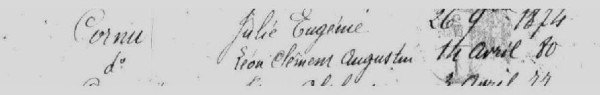 Cornu Julie Eugénie 26 9bre 1874
do Léon Clément Augustin 14 avril 80
avril